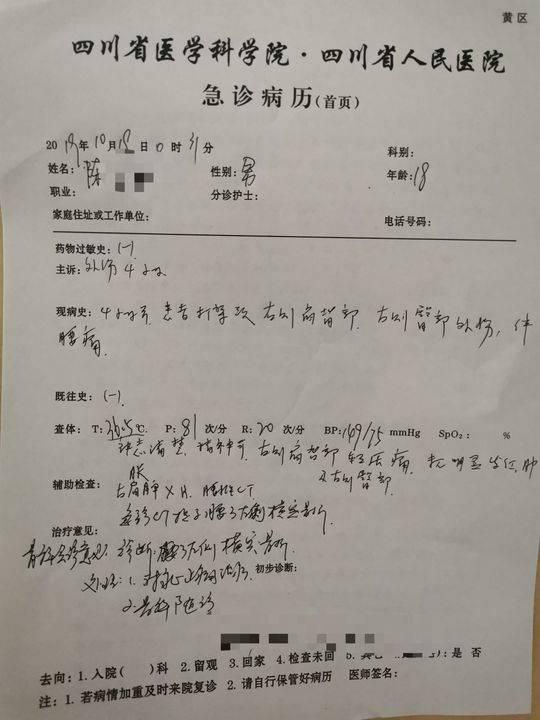 黄区
四川省医学科学院·四川省人民医院
急诊病历(首页)
2019年10月18日0时31分 科别:
姓名:陈 性别:男 年龄:18
职业: 分诊护士:
家庭住址或工作单位: 电话号码:
药物过敏史:(-)
主诉:外伤4小时
现病史:4小时前患者打架致右侧肩背部、右侧臀部外伤,伴
腰痛
既往史:(-)
查体: T:36.5℃. P:81次/分 R:20次/分 BP:149/75mmHg SpO₂: %
神志清楚 精神可 右侧肩背部 轻压痛 无明显
及右侧臀部
辅助检查: 右肩胛X片 腰椎CT
急诊CT提示腰 左侧横突骨折
治疗意见:
骨科会诊意见: 诊断 腰 左侧横突骨折
初步诊断:
处理: 1.
2.骨科随诊
去向:1.入院( )科 2.留观 3.回家 4.检查未回 :是 否
注:1.若病情加重及时来院复诊 2.请自行保管好病历 医师签名: